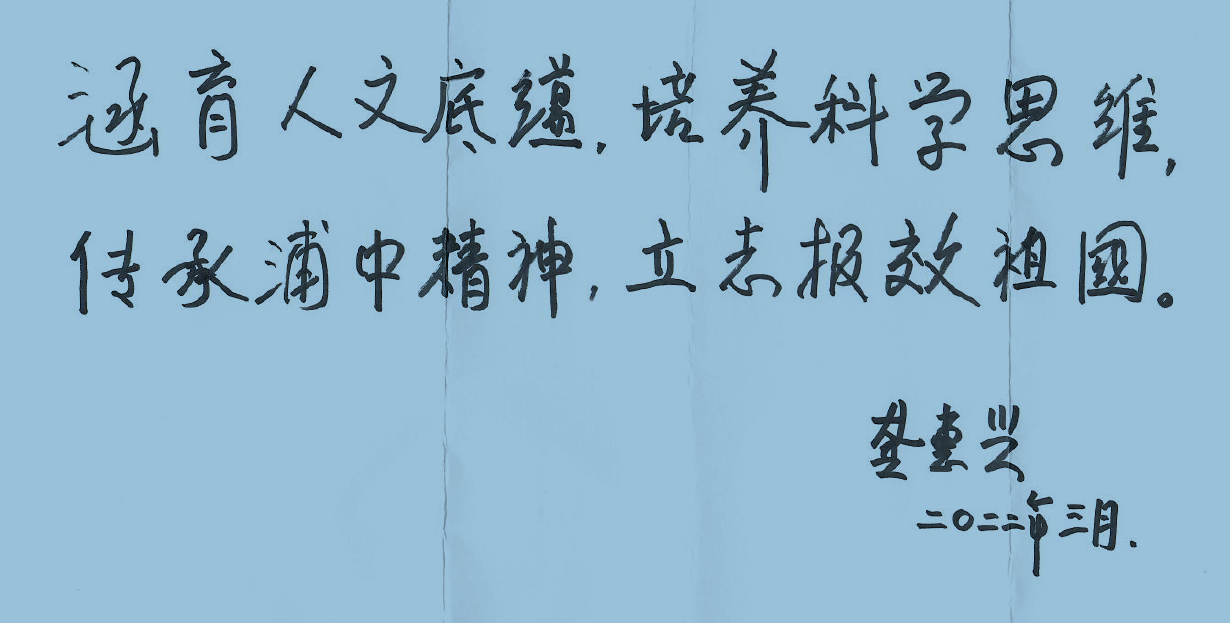 涵育人文底蕴,培养科学思维,
传承浦中精神,立志报效祖國。
龚惠兴
二〇二二年三月.